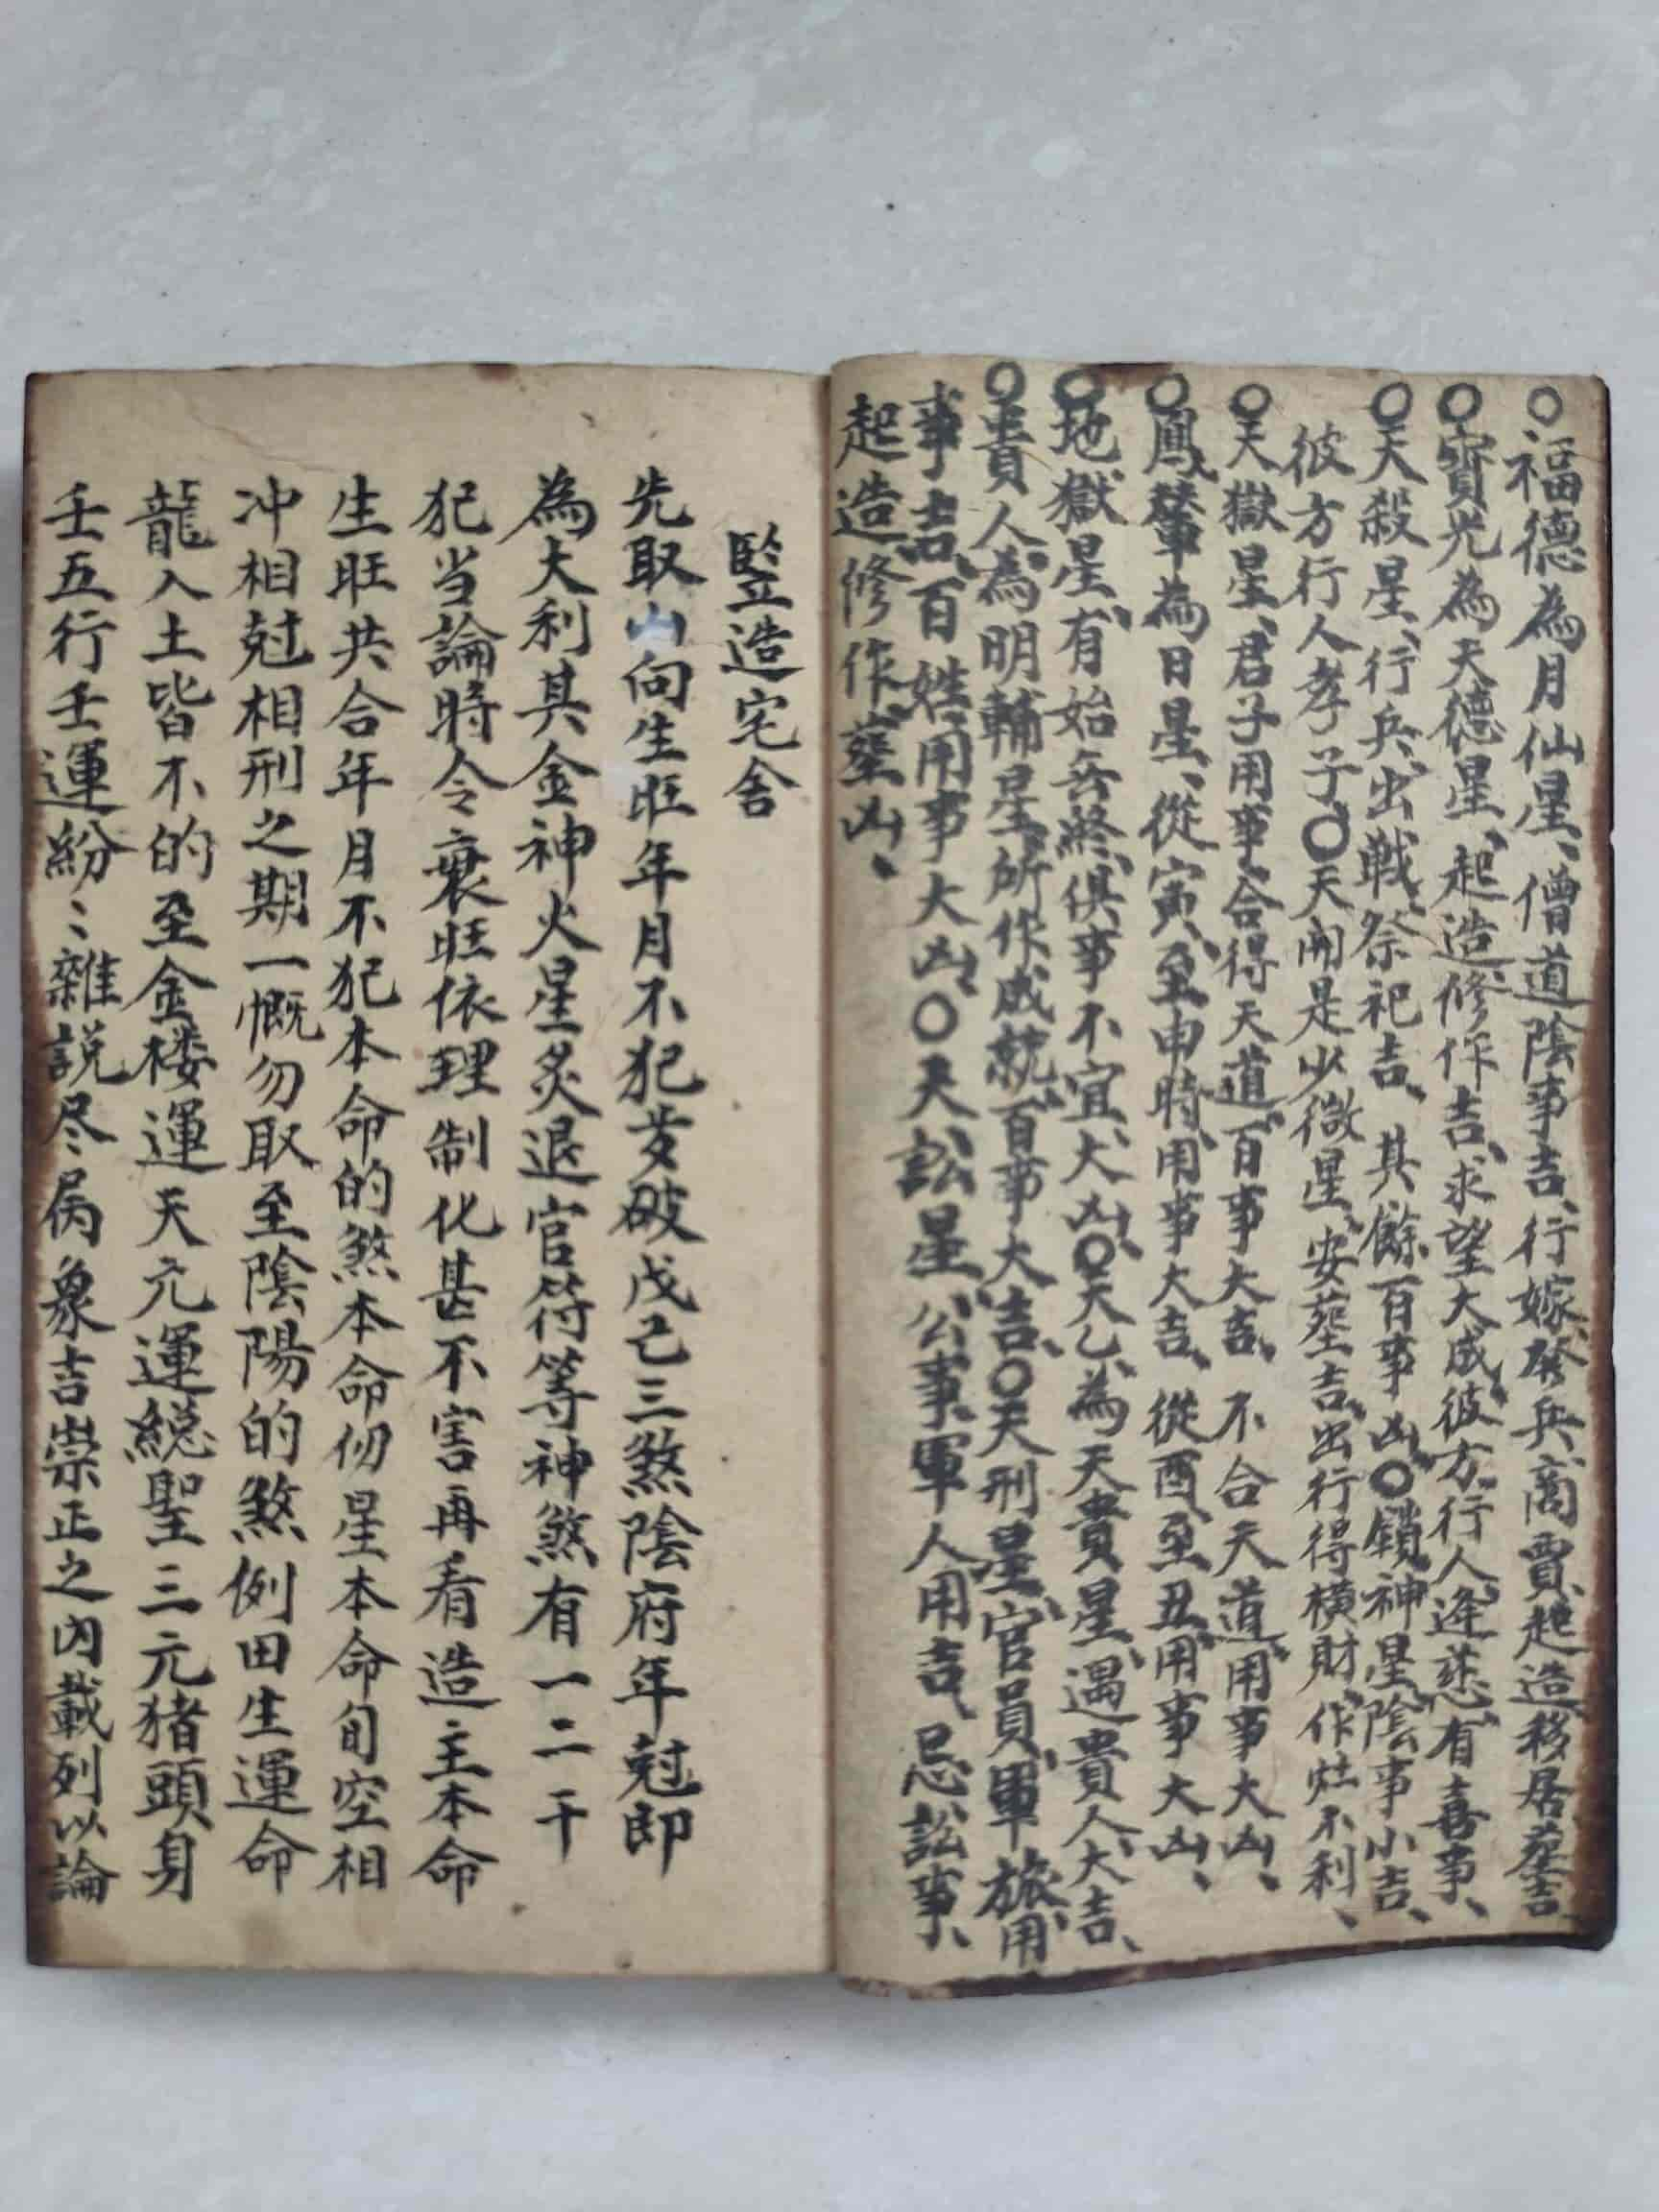 ○福德為月仙星、僧道陰事吉、行嫁、發兵、商賈、起造、移居、塟吉、
○寶光為天德星、起造、修作吉、求望大成、彼方、行人、逢慈、有喜事、
○天殺星、行兵、出戰、祭祀吉、其餘百事凶、○鎖神星、陰事小吉、
彼方行人孝子、○天開是少微星、安塟吉、出行得橫財、作灶不利、
○天獄星、君子用事、合得天道、百事大吉、不合天道、用事大凶、
○鳳輦為日星、從寅、至申時、用事大吉、從酉、至丑、用事大凶、
○地獄星、有始無終、俱事不宜、大凶、○天乙、為天貴星、遇貴人、大吉、
○貴人、為明輔星、所作成就、百事大吉、○天刑星、官員、軍旅、用
事吉、百姓、用事大凶、○天訟星、公事、軍人用吉、忌訟事、
起造、修作、塟凶、
竪造宅舍
先取山向生旺年月不犯岁破戊己三煞陰府年尅即
為大利其金神火星炙退官符等神煞有一二干
犯当論時令衰旺依理制化甚不害再看造主本命
生旺共合年月不犯本命的煞本命仞星本命旬空相
冲相尅相刑之期一慨勿取至陰陽的煞例田生運命
龍入土皆不的至金楼運天元運総聖三元猪頭身
壬五行壬運紛〻雜説尽屙象吉崇正之内載列以論